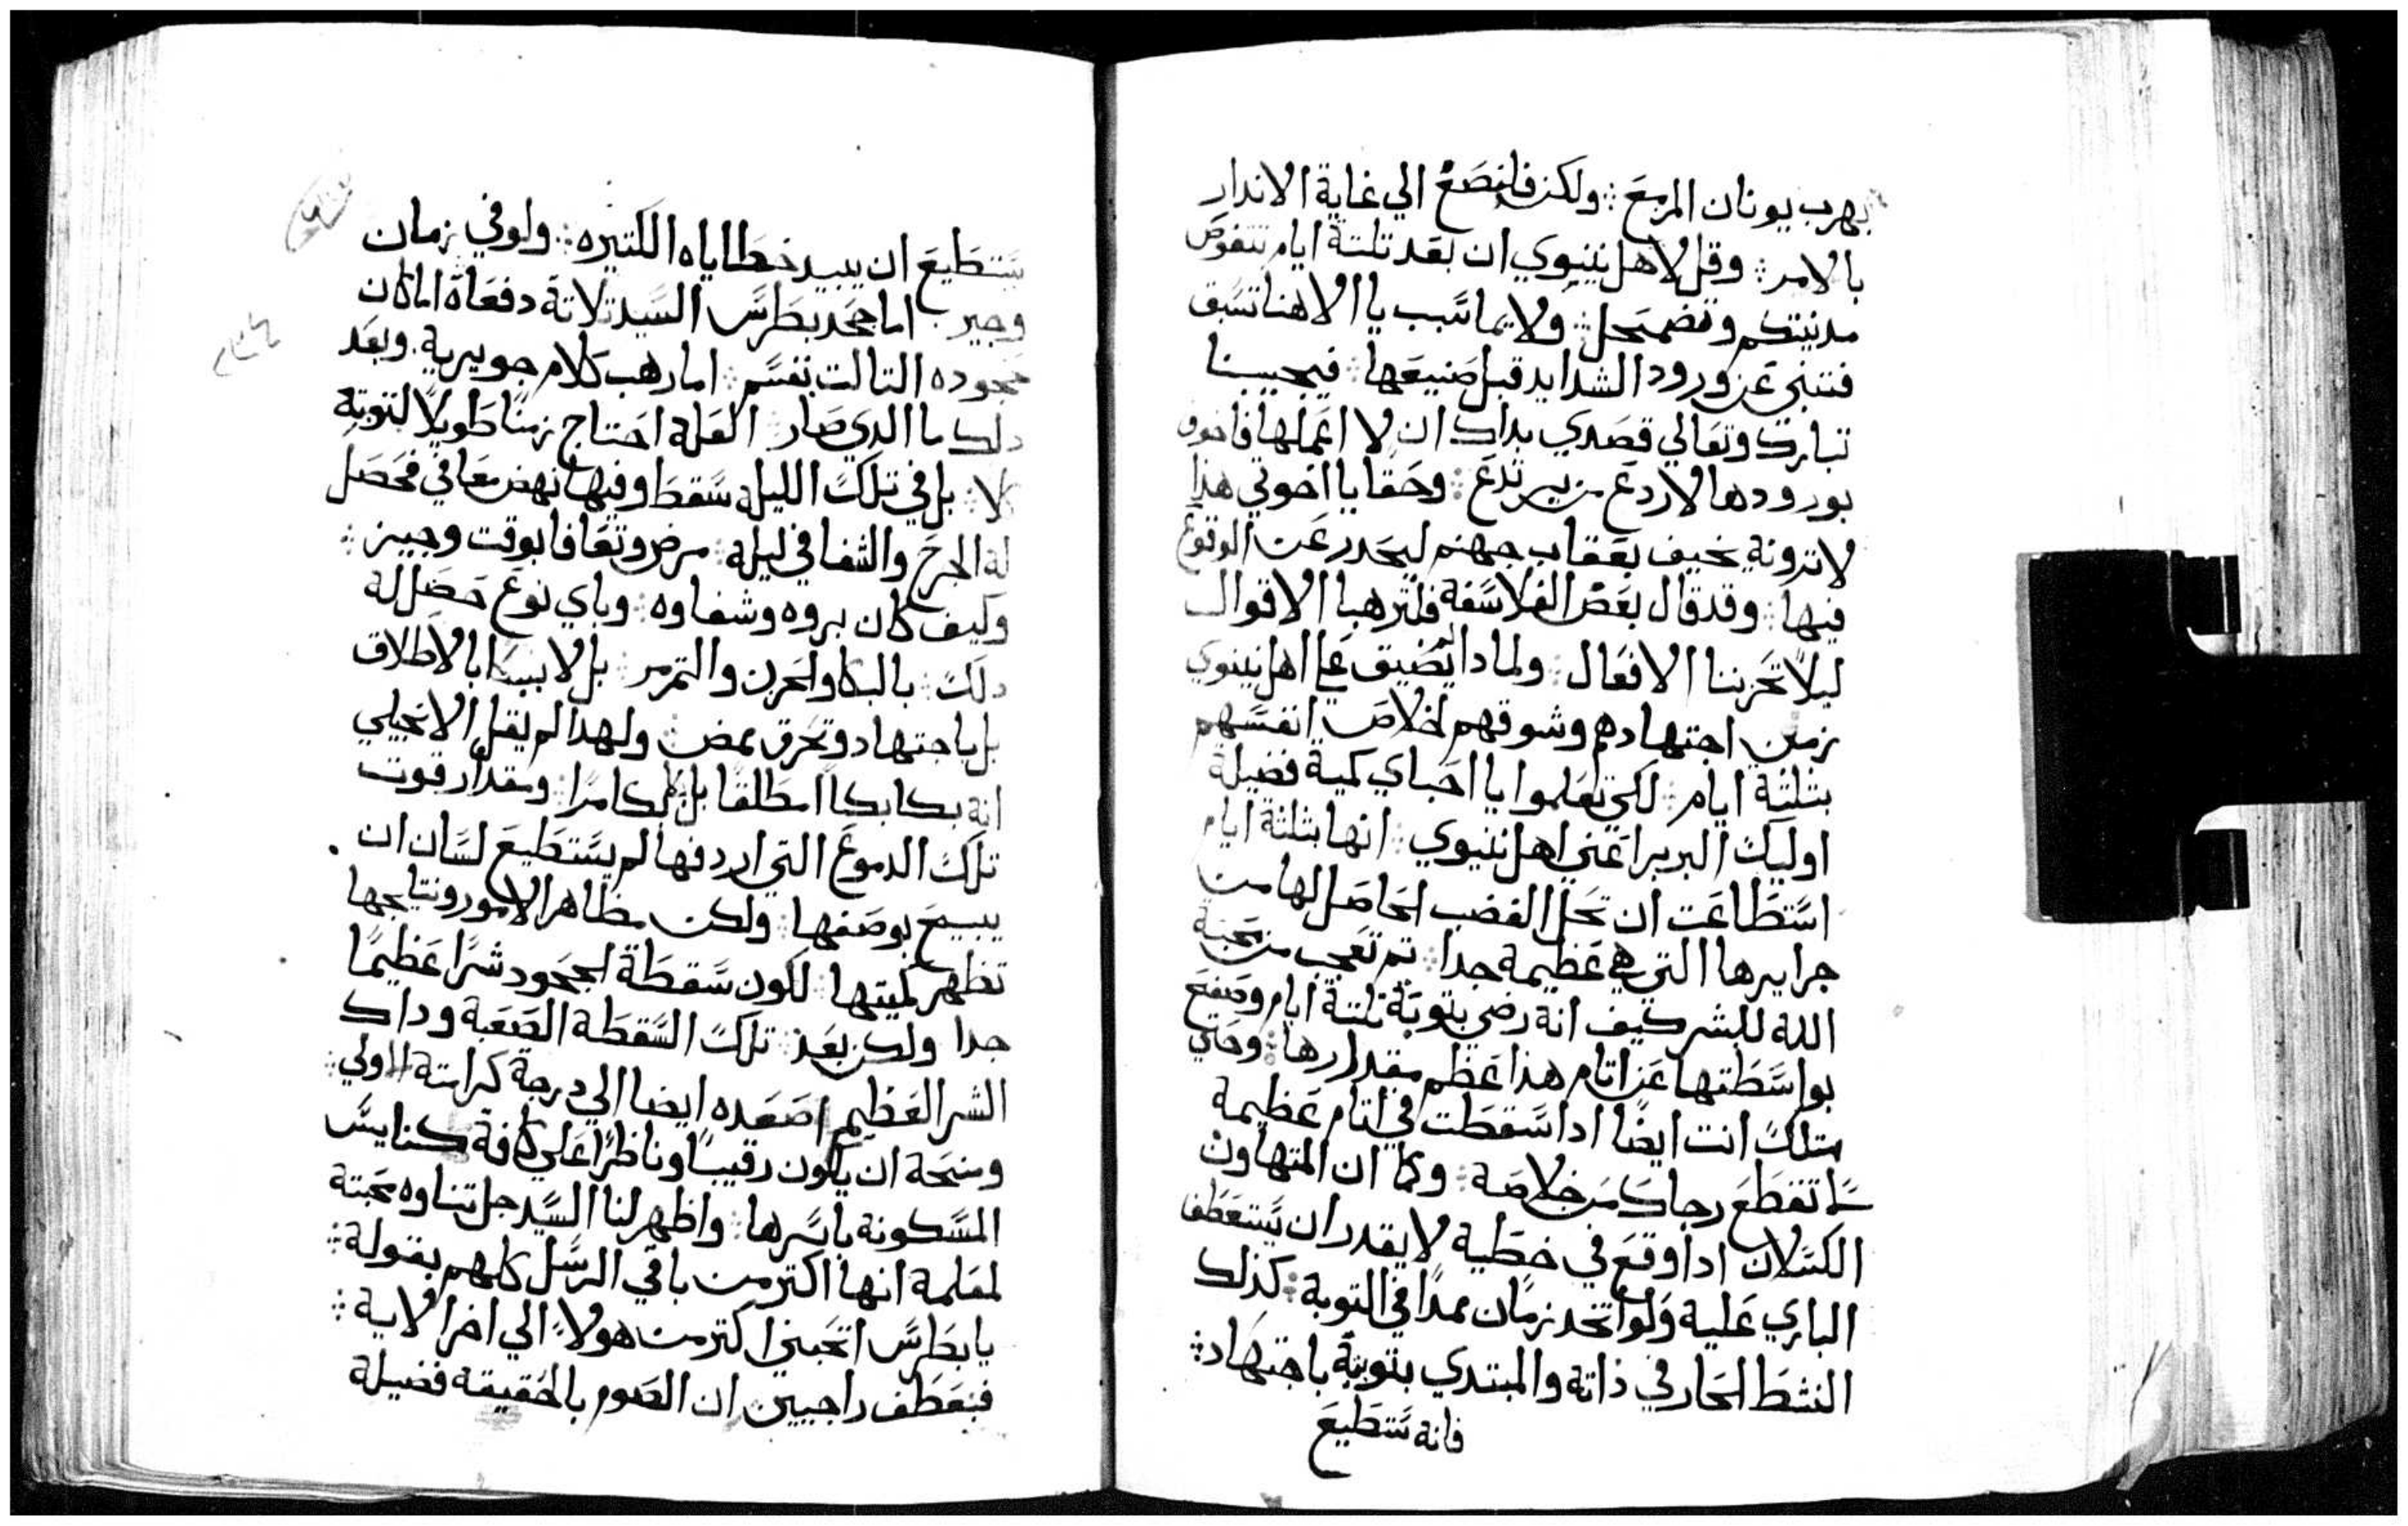 يهرب يونان المزمع ∴ ولكن فلنصغ الي غاية الاندار
بالامر ∴ وقل لاهل نينوي ان بعد تلتة ايام تتقوض
مدينتكم وتضمحل ∴ ولايما سبب يا الاهنا تسبق
فتنبي عن ورود الشدايد قبل صنيعها ∴ فيجيبنا
تبارك وتعالي قصدي بداك ان لا اعملها فاخوف
بورودها لاردع من يرتدع ∴ وحقا يا اخوتي هذا
لاترونه يخيف بعقاب جهنم ليحدر عن الوقوع
فيها ∴ وقد قال بعض الفلاسفة فلترهبا الاقوال
ليلا تحزننا الافعال ∴ ولمادا تضيق علي اهل نينوي
زمن اجتهادهم وشوقهم لخلاص انفسهم
بتلتة ايام ∴ لكي تعلموا يا احباي كمية فضيلة
اوليك البربر اعني اهل نينوي ∴ انها بتلتة ايام
استطاعت ان تحل الغضب الحاصل لها من
جرايرها التي هي عظيمة جدا ∴ تم تعجب من محبة
الله للبشر كيف انه رضي بتوبة تلتة ايام وصفح
بواسطتها عن اتام هذا عظم مقدارها ∴ وحتي
متلك انت ايضا ادا سقطت في اتام عظيمة
لا تقطع رجاك من خلاصه ∴ وكما ان المتهاون
الكسلان ادا وقع في خطية لا يقدر ان يستعطف
الباري عليه ولو اتخد زمان ممدا في التوبة ∴ كذلك
النشط الحار في ذاته والمبتدي بتوبة باجتهاد ∴
فانه يستطيع
يستطيع ان يبيد خطاياه الكتيره ∴ ولو في زمان
وجيز اما جحد بطرس السيد تلاتة دفعاة اما كان
جحوده التالت بقسم ∴ اما رهب كلام جويرية. وبعد
دلك ما الدي صار ∴ العله احتاج زمنا طويلا لتوبته
كلا ∴ بل في تلك الليله سقط وفيها نهض معافي فحصل
له الجرح والشفا في ليله ∴ مرض وتعافا بوقت وجيز ∴
وكيف كان بروه وشفاوه ∴ وباي نوع حصل له
دلك ∴ بالبكا والحزن والتمرمر ∴ بل لا ببكا بالاطلاق
بل باجتهاد وتحرق ممض ∴ ولهدا لم يقل الانجيلي
انه بكا بكاا مطلقا بل بكا مرا ∴ ومقدار قوت
تلك الدموع التي اردفها لم يستطيع لسان ان
يبيح بوصفها ∴ ولكن مظاهر الامور ونتايجها
تظهر كميتها ∴ لكون سقطة الجحود شرا عظيما
جدا ولكن بعد ∴ تلك السقطة الصعبة وداك
الشر العظيم اصعده ايضا الي درجة كرامته الاولي ∴
ومنحه ان يكون رقيبا وناظرا علي كافة كنايس
المسكونة باسرها ∴ واظهر لنا السيد جل تناوه محبتة
لمعلمه انها اكتر من باقي الرسل كلهم بقوله ∴
يا بطرس اتحبني اكتر من هولاء الي اخر الاية ∴
فنعطف راجيين ان الصوم بالحقيقه فضيلة